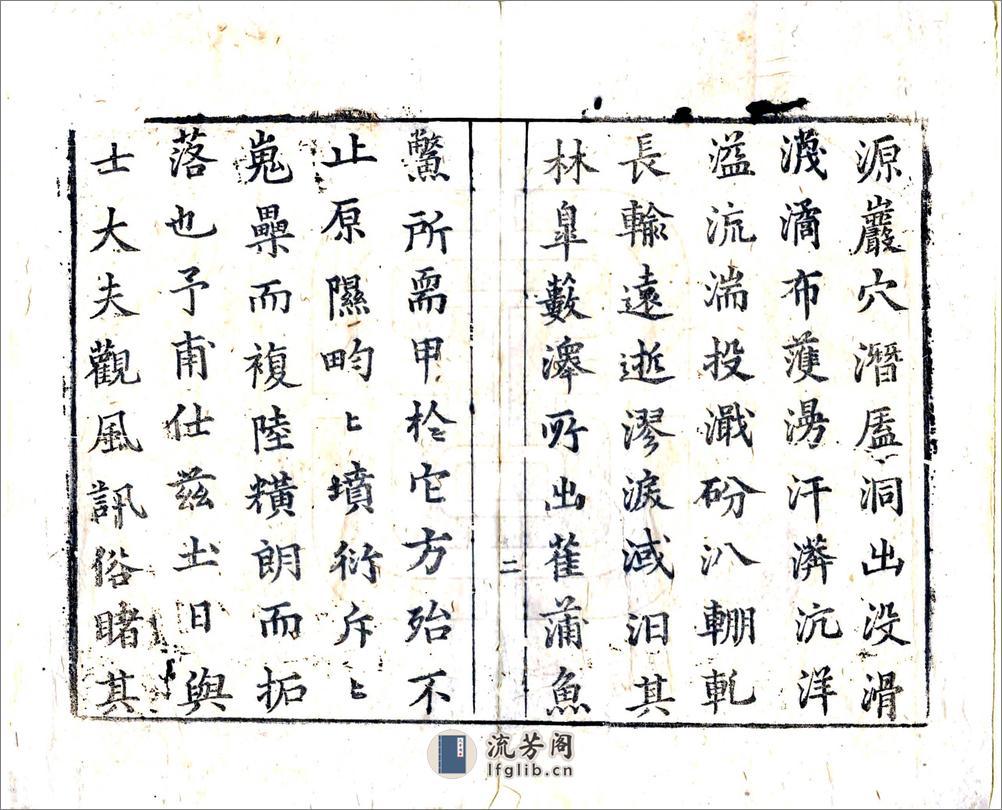 源巖穴潛廬洞出没滑
濊潏布濩漫汗漭沆洋
溢流湍投濈砏汃輣軋
長輸遠逝漻淚淢汨其
林皐藪澤所出萑蒲魚
二
鱉所需甲於它方殆不
止原隰畇〻墳衍斥〻
嵬壘而複陸爌朗而拓
落也予甫仕茲土日與
士大夫觀風訊俗睹其
流芳阁
lfglib.cn